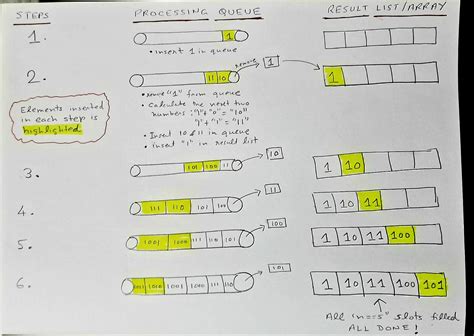 STEPS PROCESSING QUEUE RESULT LIST/ARRAY
1. 1
• insert 1 in queue
2. 11 10 remove 1 1
Elements inserted in each step is highlighted
• remove "1" from queue
• Calculate the next two
numbers: "1"+"0" = "10"
"1"+"1" = "11"
• Insert 10 & 11 in queue
• insert "1" in result list
3. 101 100 11 10 1 10
4. 111 110 101 100 11 1 10 11
5. 1001 1000 111 110 101 100 1 10 11 100
6. 1011 1010 1001 1000 111 110 101 1 10 11 100 101
All "n==5" slots filled
ALL DONE!